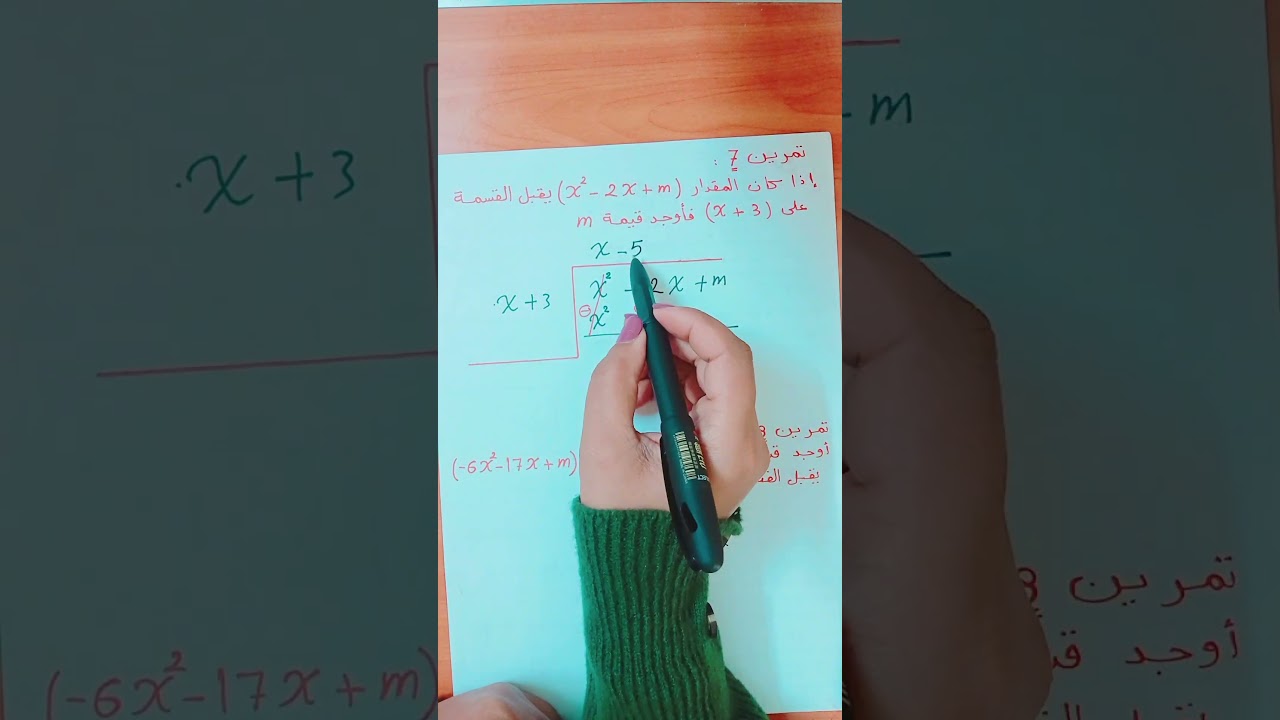 تمرين 7 :
إذا كان المقدار (x² - 2x + m) يقبل القسمة
على (x + 3) فأوجد قيمة m
x - 5
x + 3
x² - 2x + m
⊖ x²
تمرين
أوجد
يقبل
(-6x² - 17x + m)